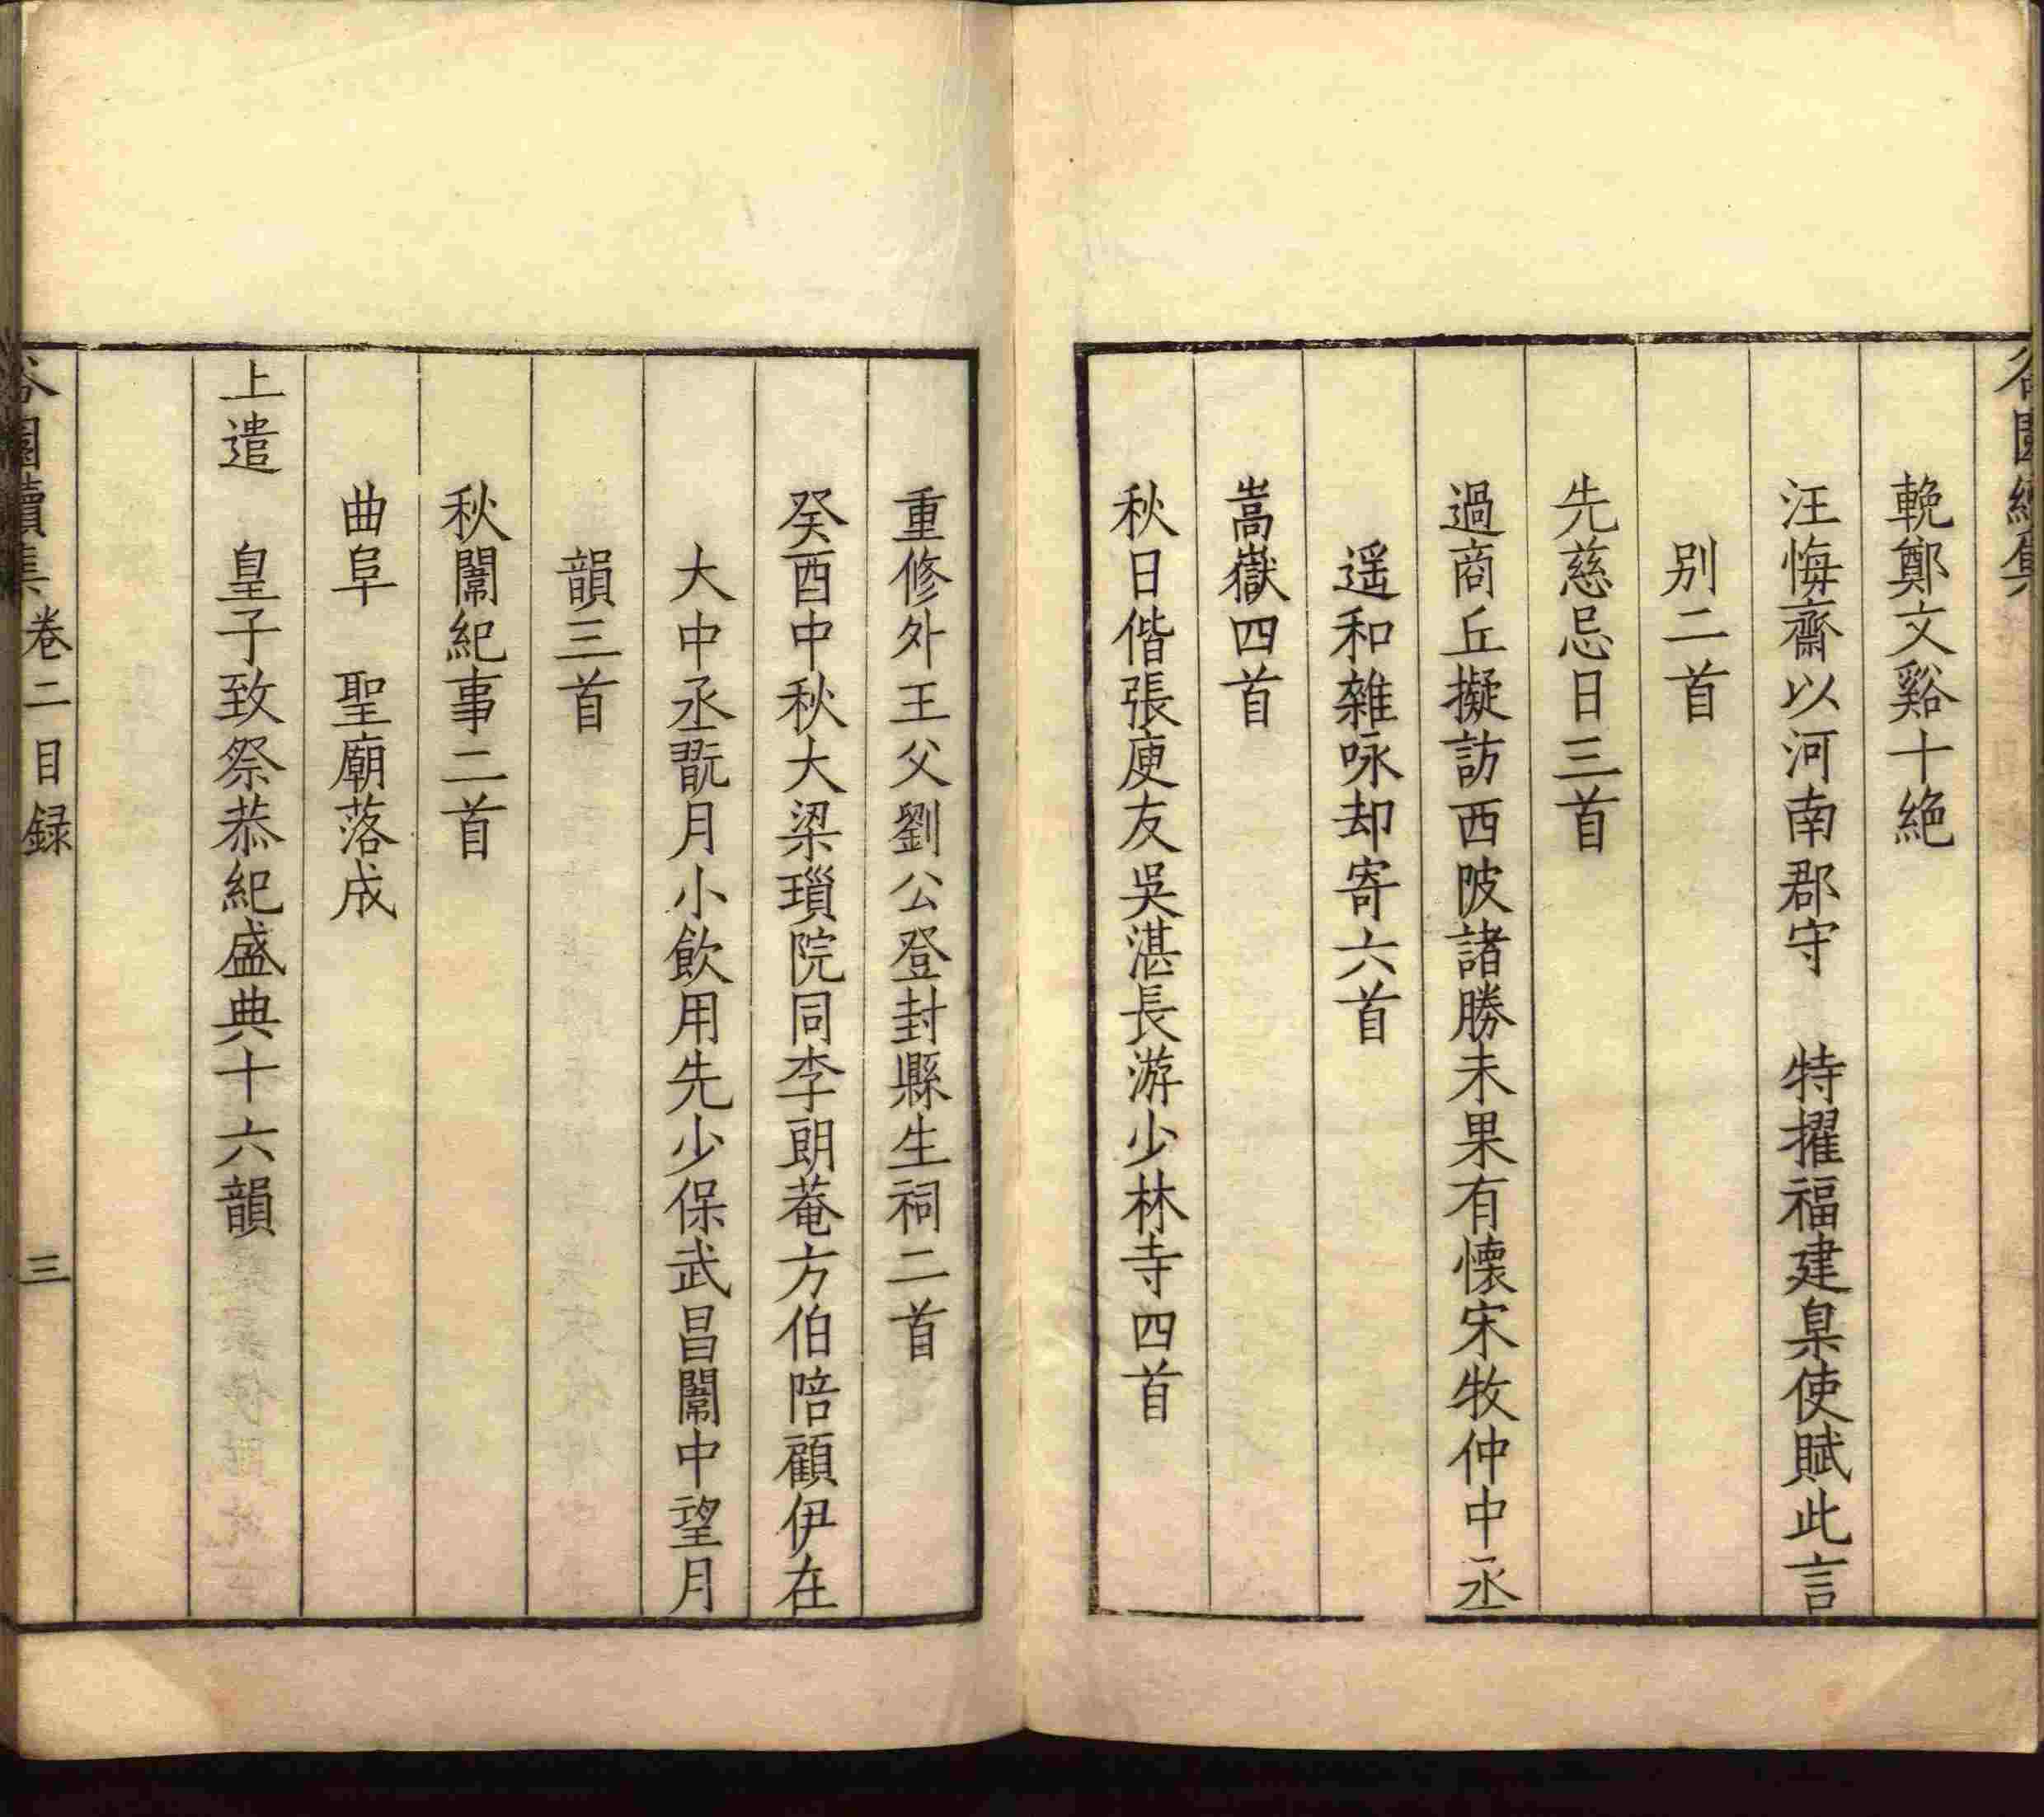 輓鄭文谿十絶
汪悔齋以河南郡守　特擢福建臬使賦此言
别二首
先慈忌日三首
過商丘擬訪西陂諸勝未果有懷宋牧仲中丞
遥和雜咏却寄六首
嵩嶽四首
秋日偕張庾友吳湛長游少林寺四首
重修外王父劉公登封縣生祠二首
癸酉中秋大梁瑣院同李朗菴方伯陪顧伊在
大中丞翫月小飲用先少保武昌闈中望月
韻三首
秋闈紀事二首
曲阜　聖廟落成
上遣　皇子致祭恭紀盛典十六韻
谷園續集　卷二目録　三